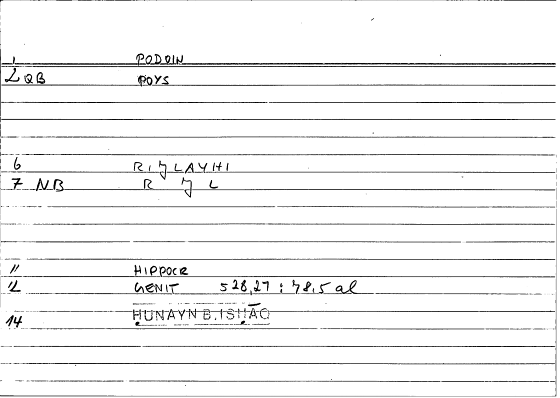 1 PODOIN
2 QB POYS
6 RIJLAYHI
7 NB R J L
11 HIPPOCR
12 GENIT 528,27 : 48,5 al
14 ḤUNAYN B. ISḤĀQ